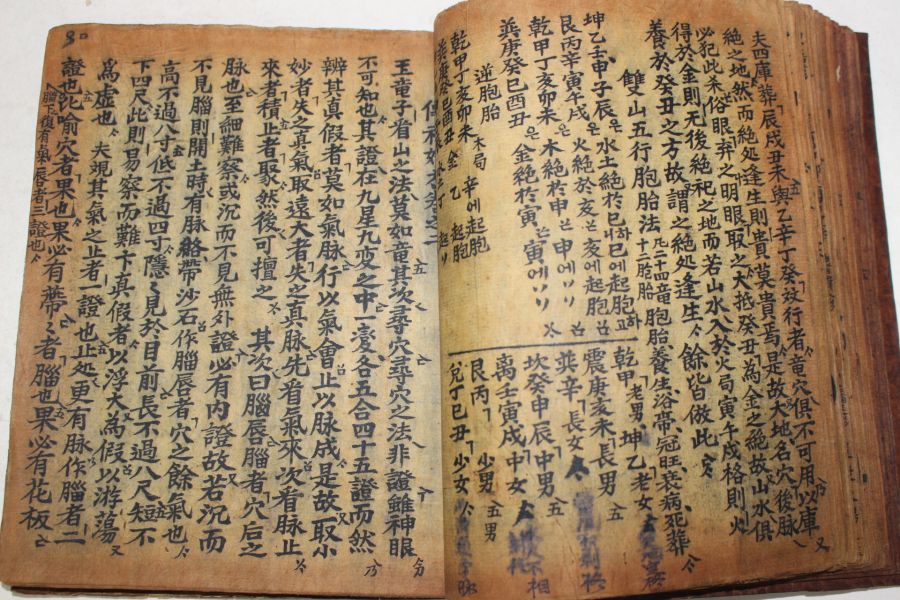 夫四庫葬辰戌丑未與乙辛丁癸玆行者竜穴俱不可用以庫
絶之地然而絶処逢生則貴莫貴焉是故大地名穴後脉
必犯此杀俗眼弃之明眼取之大抵癸丑為金之絶故山水俱
得於金則无後絶祀之地而若山水入於火局寅午戌格則火
養於癸丑之方故謂之絶処逢生 餘皆倣此
雙山五行胞胎法 凡二十四竜胞胎養生浴帶冠旺衰病死葬
十二胞胎
坤乙壬申子辰은 水土絶於巳하 巳에起胞
艮丙辛寅午戌은 火絶於亥 亥에起胞
乾甲丁亥卯未은 木絶於申 申에
巽庚癸巳酉丑은 金絶於寅 寅에
逆胞胎
乾甲丁亥卯未 木局 辛에起胞
巽庚癸巳酉丑 金 乙 起胞
乾甲 老男 坤乙 老女
震庚亥未 長男
巽辛 長女
坎癸申辰 中男
離壬寅戌 中女
艮丙 少男
兌丁巳丑 少女
王竜子看山之法莫如竜其次尋穴尋穴之法非證雖神眼
不可知也其證在九星九变之中一变各五合四十五證而然
辨其真假者莫如氣脉行以氣會止以脉成是故取小
妙者失之真氣取遠大者失之真脉先看氣來次看脉止
來者積止者聚然後可擅之 其次曰腦唇腦者穴后之
脉也至細難察或沉而不見無外證必有内證故若沉而
不見腦則開土時有脉絡帶沙石作腦唇者穴之餘氣也
高不過八寸低不過四寸隱隱見於目前長不過八尺短不
下四尺此則易察而難卞真假者以浮大為假以游蕩
為虛也 夫覌其氣之止者一證也止処更有脉作腦者二
證也比喻穴者果也果必有蔕蔕者腦也果必有花板
腦下復有氣唇者三證也